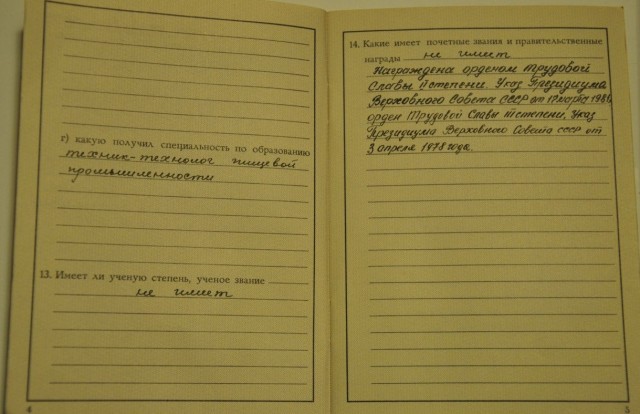 г) какую получил специальность по образованию
техник-технолог пищевой
промышленности
13. Имеет ли ученую степень, ученое звание
не имеет
4
14. Какие имеет почетные звания и правительственные
награды не имеет
Награждена орденом Трудовой
Славы II степени. Указ Президиума
Верховного Совета СССР от 17 марта
орден Трудовой Славы III степени, Указ
Президиума Верховного Совета СССР от
3 апреля 1978 года.